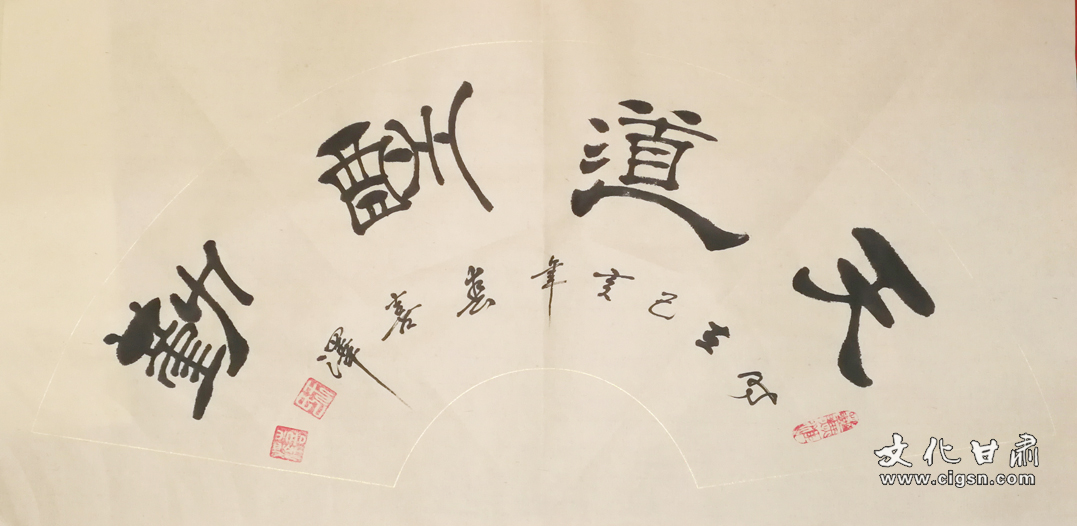 天道酬勤
时在己亥年 喜澤
文化甘肃
www.cigsn.com